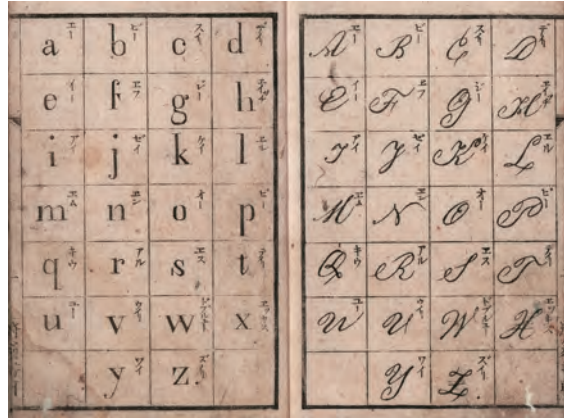 a エー b ビー c スイ d デイ
e イー f エフ g ジー h
i アイ j ゼイ k ケイ l エル
m エム n エン o オー p ピー
q キウ r アル s エス t テイ
u ユー v ウイ w x
y ワイ z ズイ
A エー B ビー C スイ D デイ
E イー F エフ G ジー H
I アイ J ゼイ K ケイ L エル
M エム N エン O オー P ピー
Q キウ R アル S エス T テイ
U ユー V ウイ W X
Y ワイ Z ズイ